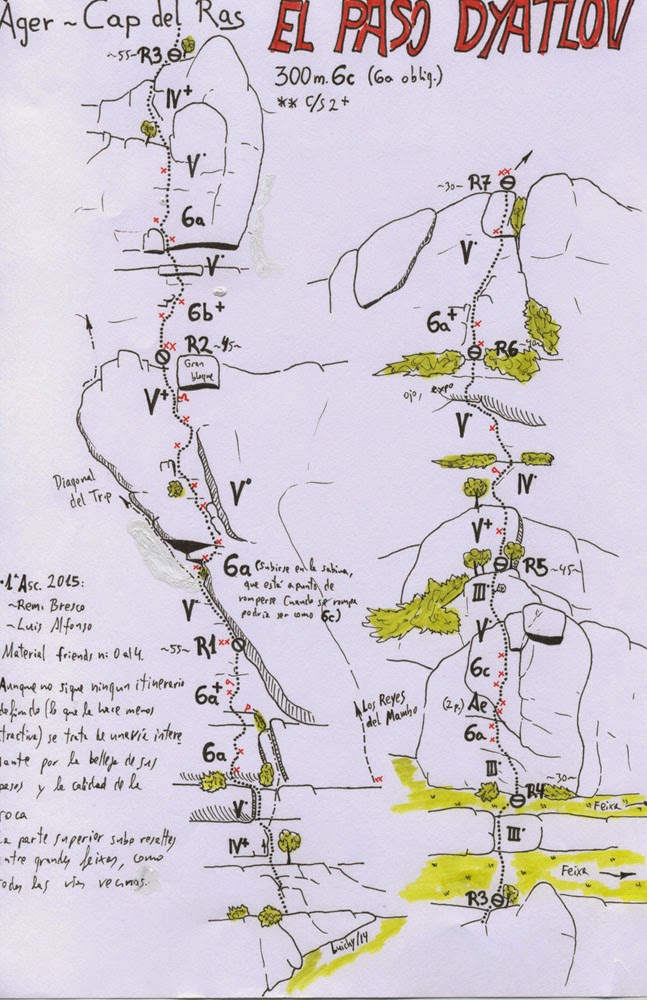 Àger ~ Cap del Ras
EL PASO DYATLOV
300 m. 6c (6a oblig.)
** c/s 2+
~55~ R3
IV+
V·
6a
V·
6b+
R2 ~45~
Gran
bloque
V+
Diagonal
del Trip
V°
6a (subirse en la sabina,
que está a punto de
romperse. Cuando se rompa
podría ser como 6c)
V·
~55~ R1
6a+
6a
V·
IV+
Los Reyes
del Mambo
·1ª Asc. 2015:
~Remi Bresco
~Luis Alfonso
Material friends nº 0 al 4.
Aunque no sigue ningun itinerario
definido (lo que la hace menos
tractiva) se trata de una vía intere
sante por la belleza de sus
pasos y la calidad de la
roca
La parte superior sube resaltes
entre grandes feixas, como
todas las vías vecinas.
luichy/14
~30~ R7
V·
6a+
R6
ojo, expo
V·
IV·
V+
R5 ~45~
III·
V·
6c
(2p.) Ae
6a
III
~30~
R4
Feixa
III·
Feixa
R3